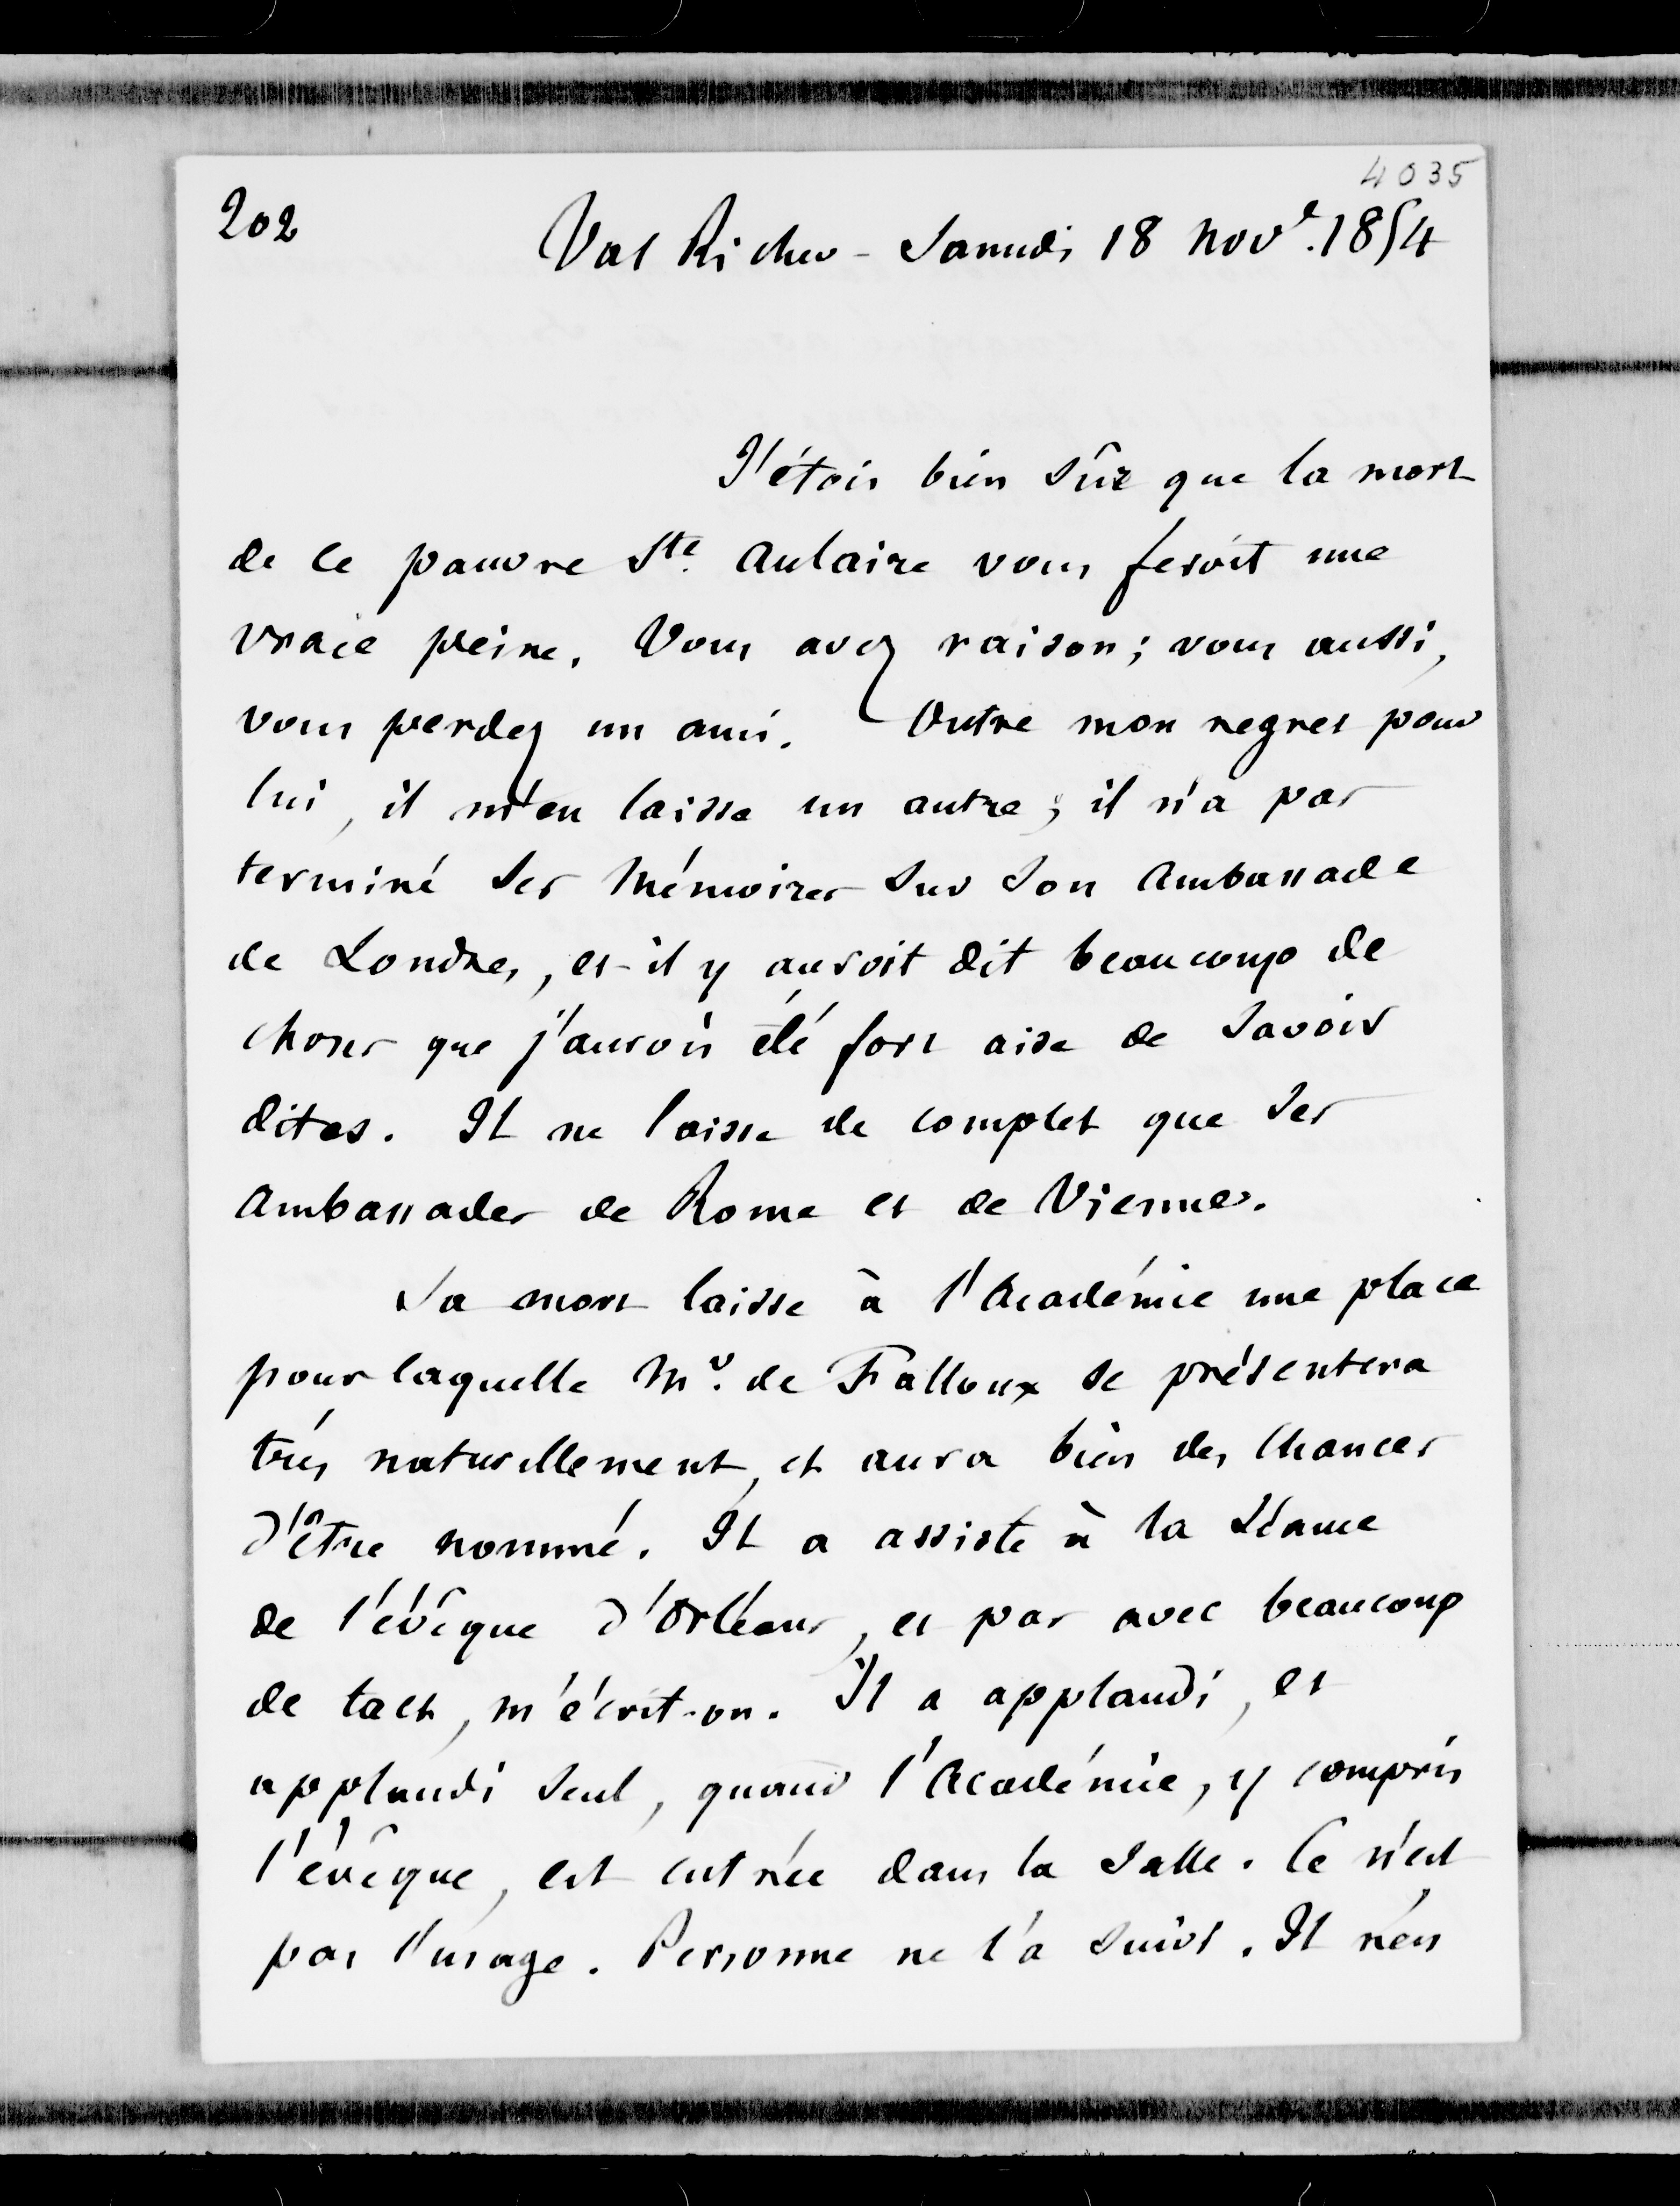 4035
202
Val Richer - Samedi 18 Nov.e 1854
J'étois bien sûr que la mort
de ce pauvre Ste Aulaire vous feroit une
vraie peine. Vous avez raison ; vous aussi,
vous perdez un ami. Outre mon regret pour
lui, il m'en laisse un autre ; il n'a pas
terminé ses Mémoires sur son Ambassade
de Londres, et il y auroit dit beaucoup de
choses que j'aurois été fort aise de savoir
dites. Il ne laisse de complet que ses
Ambassades de Rome et de Vienne.
Sa mort laisse à l'Académie une place
pour laquelle Mr. de Falloux se présentera
très naturellement, et aura bien des chances
d'être nommé. Il a assisté à la séance
de l'évêque d'Orléans, et pas avec beaucoup
de tact, m'écrit-on. Il a applaudi, et
applaudi seul, quand l'Académie, y compris
l'évêque, est entrée dans la salle. Ce n'est
pas l'usage. Personne ne l'a suivi. Il n'en